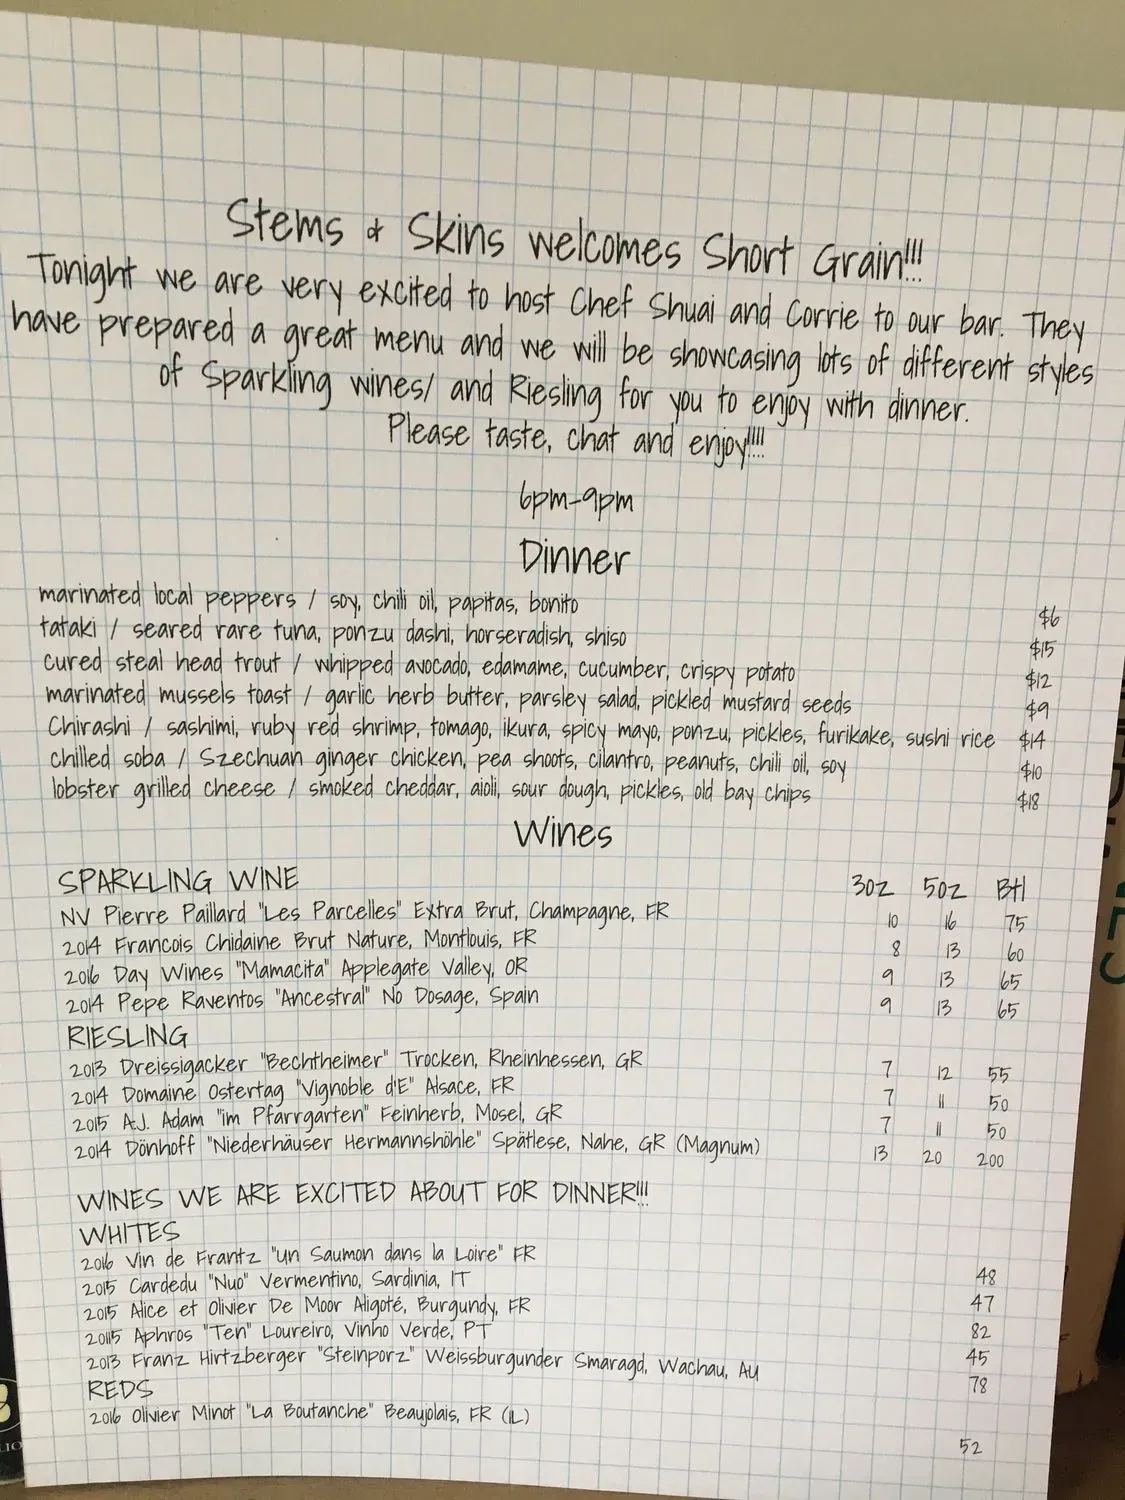 Stems & Skins welcomes Short Grain!!!
Tonight we are very excited to host Chef Shuai and Corrie to our bar. They
have prepared a great menu and we will be showcasing lots of different styles
of Sparkling wines/ and Riesling for you to enjoy with dinner.
Please taste, chat and enjoy!!!!
6pm-9pm
Dinner
marinated local peppers / soy, chili oil, papitas, bonito $6
tataki / seared rare tuna, ponzu dashi, horseradish, shiso $15
cured steal head trout / whipped avocado, edamame, cucumber, crispy potato $12
marinated mussels toast / garlic herb butter, parsley salad, pickled mustard seeds $9
Chirashi / sashimi, ruby red shrimp, tomago, ikura, spicy mayo, ponzu, pickles, furikake, sushi rice $14
chilled soba / Szechuan ginger chicken, pea shoots, cilantro, peanuts, chili oil, soy $10
lobster grilled cheese / smoked cheddar, aioli, sour dough, pickles, old bay chips $18
Wines
SPARKLING WINE 3oz 5oz Btl
NV Pierre Paillard "Les Parcelles" Extra Brut, Champagne, FR 10 16 75
2014 Francois Chidaine Brut Nature, Montlouis, FR 8 13 60
2016 Day Wines "Mamacita" Applegate Valley, OR 9 13 65
2014 Pepe Raventos "Ancestral" No Dosage, Spain 9 13 65
RIESLING
2013 Dreissigacker "Bechtheimer" Trocken, Rheinhessen, GR 7 12 55
2014 Domaine Ostertag "Vignoble d'E" Alsace, FR 7 11 50
2015 A.J. Adam "im Pfarrgarten" Feinherb, Mosel, GR 7 11 50
2014 Dönhoff "Niederhäuser Hermannshöhle" Spätlese, Nahe, GR (Magnum) 13 20 200
WINES WE ARE EXCITED ABOUT FOR DINNER!!!
WHITES
2016 Vin de Frantz "Un Saumon dans la Loire" FR 48
2015 Cardedu "Nuo" Vermentino, Sardinia, IT 47
2015 Alice et Olivier De Moor Aligoté, Burgundy, FR 82
20115 Aphros "Ten" Loureiro, Vinho Verde, PT 45
2013 Franz Hirtzberger "Steinporz" Weissburgunder Smaragd, Wachau, AU 78
REDS
2016 Olivier Minot "La Boutanche" Beaujolais, FR (1L) 52